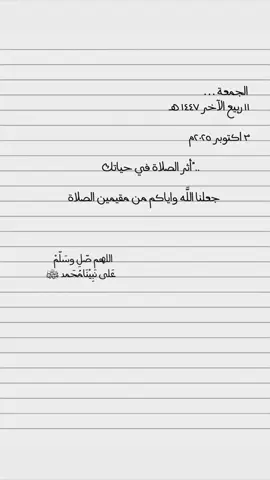 الجمعة ...
١١ ربيع الآخر ١٤٤٧ هـ
٣ أكتوبر ٢٠٢٥م
.."أثر الصلاة في حياتك
جعلنا اللَّه واياكم من مقيمين الصلاة
اللهم صَلِ وسَلِّمْ
على نَبِيْنَا مُحَمد ﷺ